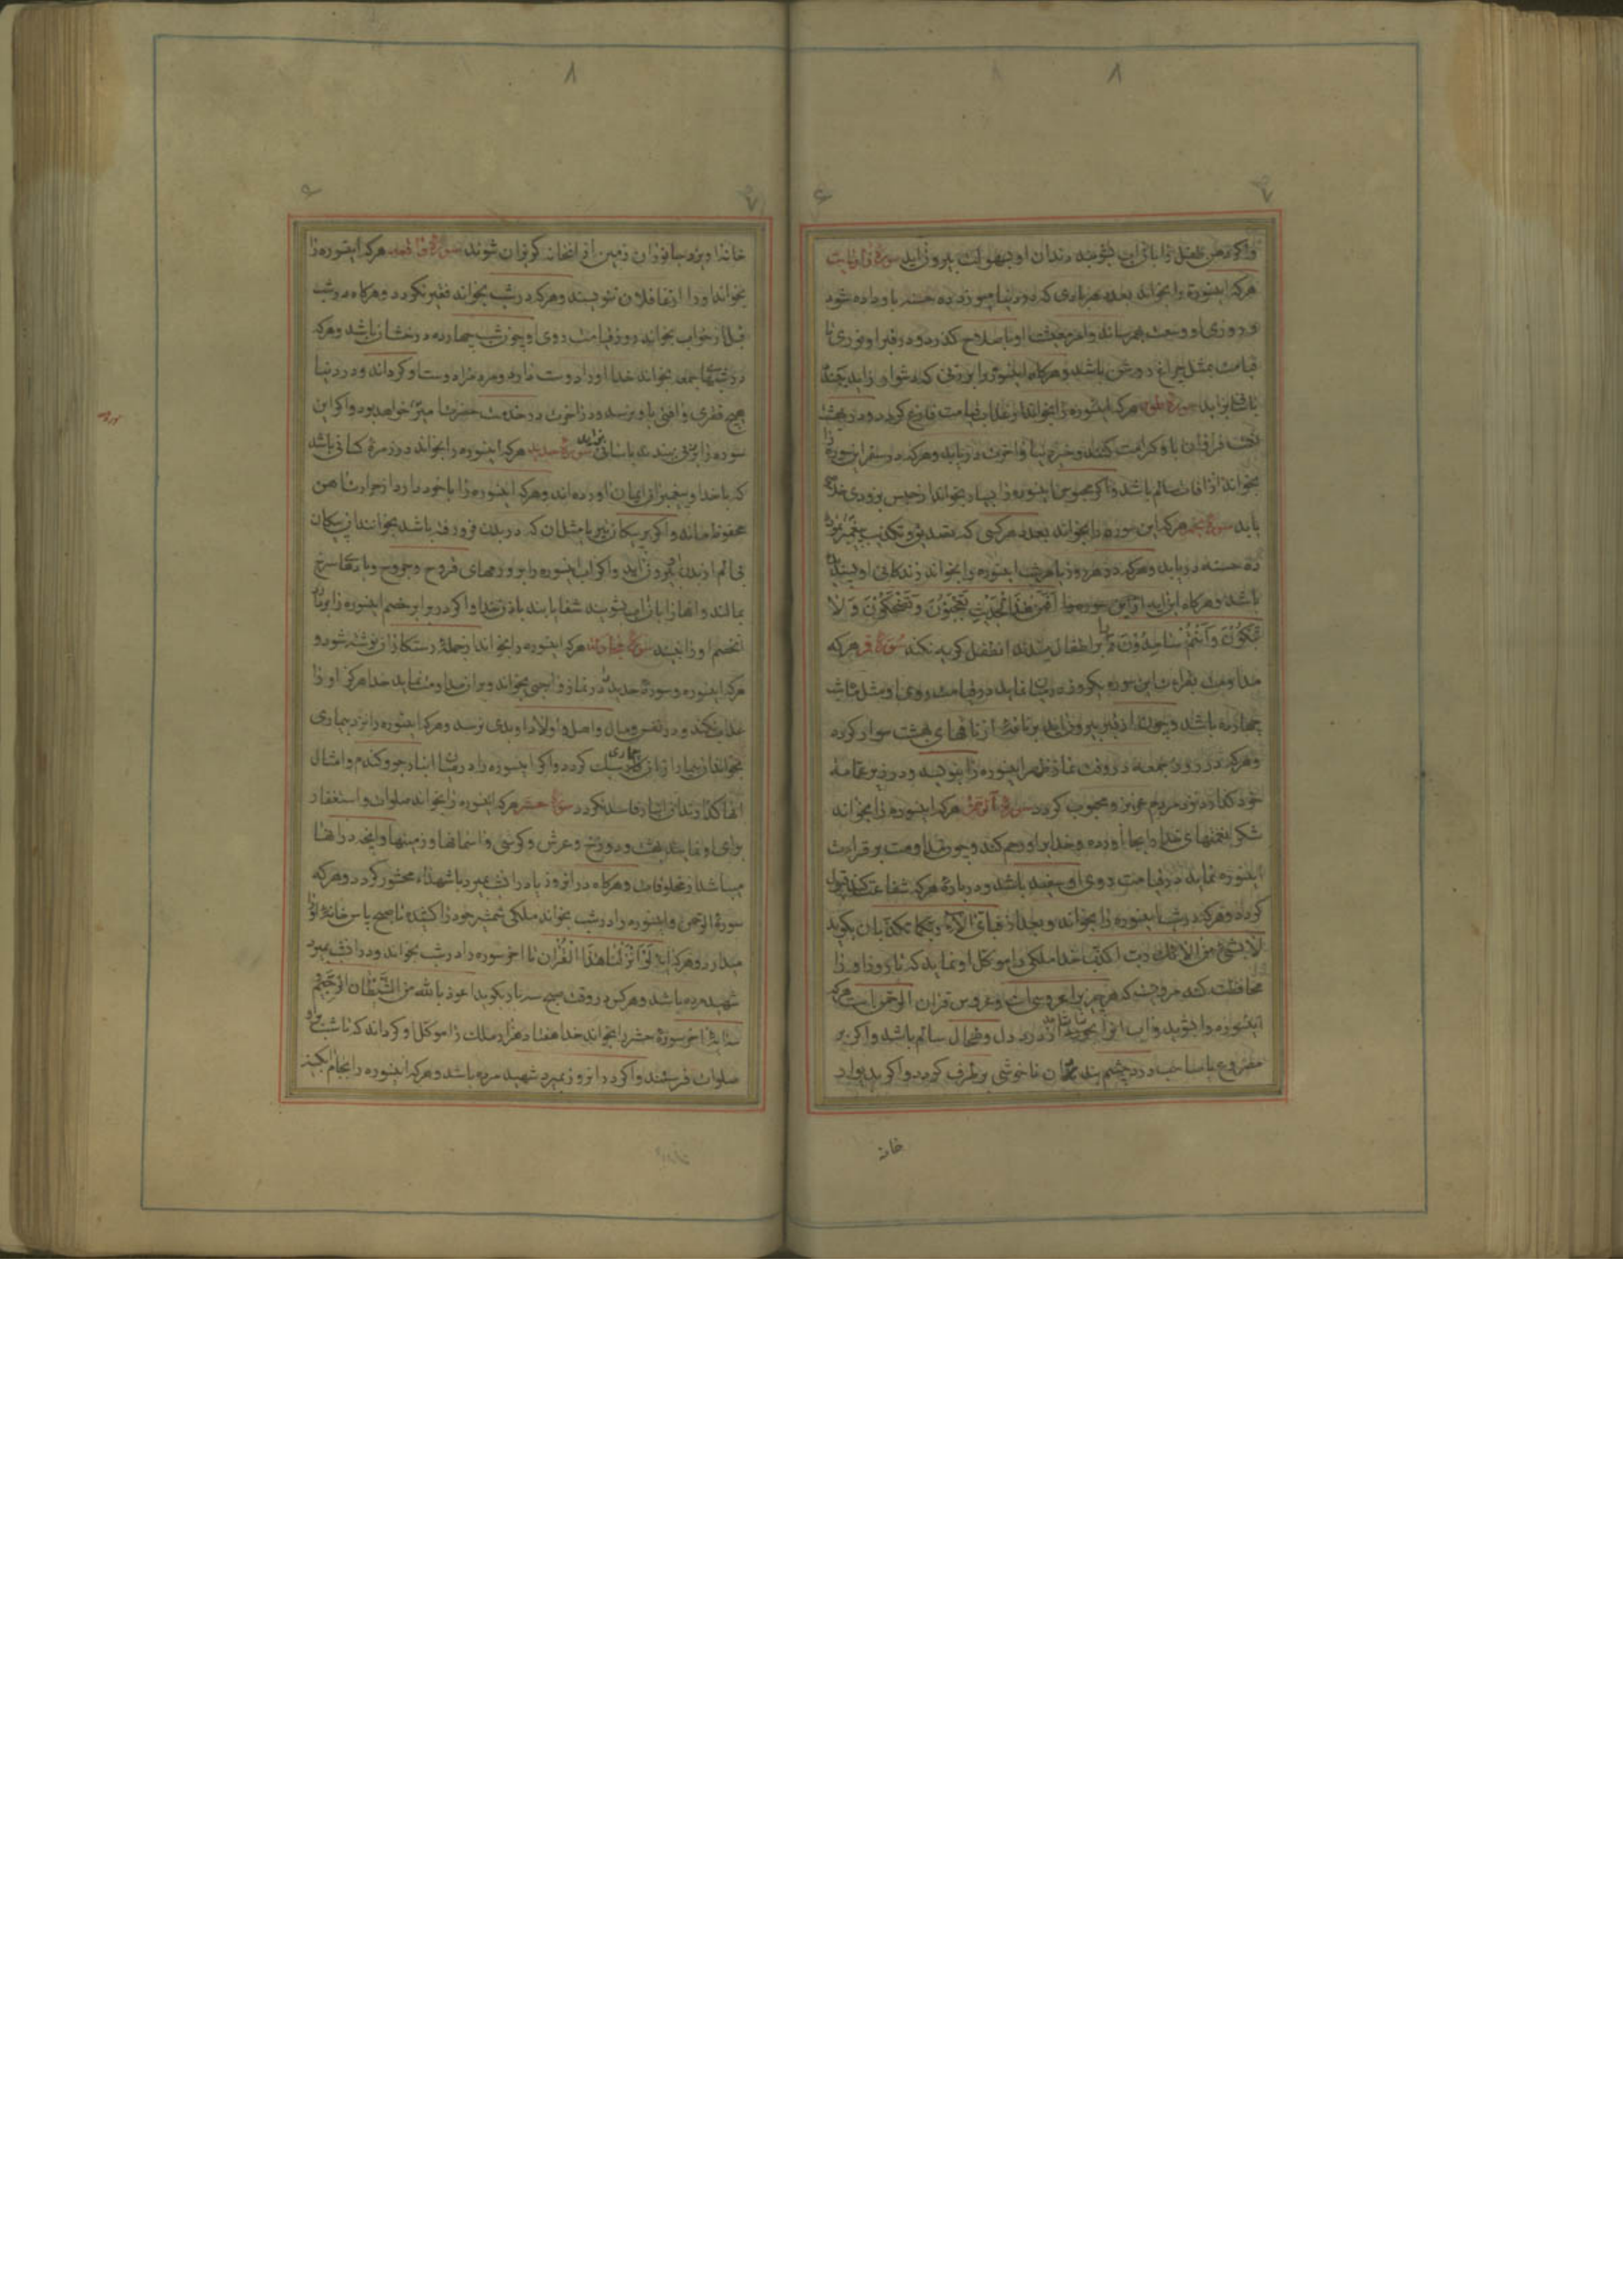 ۸
۷
۶
واکر دهن طفل را با ان اب بشویند دندان او بسهولت بیرون اید سورهٔ ذاریات
هرکه اینسوره را بخواند بعدد هر بادی که در دنیا میوزد ده حسنه باو داده شود
و روزی او وسعت بهم رساند و امر معیشت او باصلاح کذرد و در قبر او نوری تا
قیامت بمثل چراغ روشن باشد و هرکاه اینسوره را بر زنی که دشوار زاید بندند
باسانی زاید سورهٔ طور هرکه اینسوره را بخواند از عذاب قیامت فارغ کردد و در بهشت
باو کرامت کنند و خیر دنیا و اخرت دریابد و هرکه در سفر این سوره را
بخواند از افات سالم باشد و اکر محبوس اینسوره را بسیار بخواند از حبس بزودی خلاصی
یابد سورهٔ نجم هرکه این سوره را بخواند بعدد هر کسی که تصدیق و تکذیب پیغمبر نمود
ده حسنه دریابد و هرکه در هر روز یا هر شب اینسوره را بخواند زندکانی او پسندیده
باشد و هرکاه این ایه از این سوره را اَفَمِنْ هٰذَا الْحَدیثِ تَعْجَبُوْنَ وَ تَضْحَکُوْنَ وَ لا
تَبْکُوْنَ وَ اَنْتُمْ سٰامِدُوْنَ را بر اطفال بندند انطفل کریه نکند سُورَهٔ قمر هرکه
مداومت بقرائت این سوره یکروز در میان نماید در قیامت روی او مثل ماه شب
چهارده باشد و چون از قبر بیرون اید بر ناقهٔ از ناقهای بهشت سوار کردد
و هرکه در روز جمعه در وقت نماز ظهر اینسوره را بنویسد و در زیر عمامهٔ
خود کذارد نزد مردم عزیز و محبوب کردد سورهٔ الرّحمن هرکه اینسوره را بخواند
شکر نعمتهای خدا را بجا اورده و خدا بر او رحم کند و چون مداومت بر قرائت
اینسوره نماید در قیامت روی او سفید باشد و در بارهٔ هرکه شفاعت کند قبول
کردد و هرکه در شب اینسوره را بخواند و بعد از فَبِایّ الآءِ رَبِّکُما تُکَذِّبان بکوید
لا بشیء من الائک رب اکذب خدا ملکی را موکل او نماید که تا روز او را
محافظت کند مرویست که هر چیز را عروسی است و عروس قران الرحمن است هرکه
اینسوره را بشوید و اب انرا بخورد از درد دل و طحال سالم باشد و اکر بر
مصروع یا صاحب درد چشم بندند ناخوشی برطرف کردد و اکر بدیوار
خانه
۸
۷
۶
خانه اویزد جانوران زمین از انخانه کریزان شوند سورهٔ واقعه هرکه اینسوره را
بخواند او را از غافلان ننویسند و هرکه در شب بخواند فقیر نکردد و هرکاه در شب
قبل از خواب بخواند روز قیامت روی او چون شب چهارده درخشان باشد و هرکه
در شبهای جمعه بخواند خدا او را دوست دارد و مردم را دوست او کرداند و در دنیا
هیچ فقری و افتی باو نرسد و در اخرت در خدمت حضرت امیرؑ خواهد بود و اکر این
سوره را بر زنی بندند باسانی بزاید سورهٔ حدید هرکه اینسوره را بخواند در زمرهٔ کسانی باشد
که با خدا و پیغمبر او ایمان اورده‌اند و هرکه اینسوره را با خود دارد از حرارت اهن
محفوظ ماند و اکر بر پیکان تیر یا مثل ان که در بدن فرو رفته باشد بخوانند ان پیکان
بی الم از بدن بیرون اید و اکر اب اینسوره را بر زخمهای قروح و جروح و باد سرخ
بمالند و انها را با ان اب بشویند شفا یابند باذن خدا و اکر در برابر خصم اینسوره را بخواند
انخصم او را نبیند سورهٔ مجادله هرکه اینسوره را بخواند از جملهٔ رستکاران نوشته شود و
هرکه اینسوره و سورهٔ حدید را در نماز واجبی بخواند و بر ان مداومت نماید خدا هرکز او را
عذاب نکند و در نفس و مال و اهل و اولاد او بدی نرسد و هرکه اینسوره را نزد بیماری
بخواند ان بیمار از ان بیماری سبک کردد و اکر اینسوره را در میان انبار جو و کندم و امثال
انها کذارند ان انبار فاسد نکردد سورهٔ حشر هرکه اینسوره را بخواند صلوات و استغفار
برای او نمایند بهشت و دوزخ و عرش و کرسی و اسمانها و زمینها و انچه در انها
میباشد از مخلوقات و هرکاه در انروز یا در انشب بمیرد با شهداء محشور کردد و هرکه
سورهٔ الرحمن و اینسوره را در شب بخواند ملکی شمشیر خود را کشیده تا صبح پاس خانهٔ او را
میدارد و هرکه ایهٔ لَوْ اَنْزَلْنا هٰذَا الْقُرْان تا اخر سوره را در شب بخواند و در انشب بمیرد
شهید مرده باشد و هرکس در وقت صبح سه بار بکوید اعوذ بالله من الشَّیْطانِ الرَّجیْم
اخر سورهٔ حشر را بخواند خدا هفتاد هزار ملک را موکل او کرداند که تا شب بر او
صلوات فرستند و اکر در انروز بمیرد شهید مرده باشد و هرکه اینسوره را بجام ابکینه